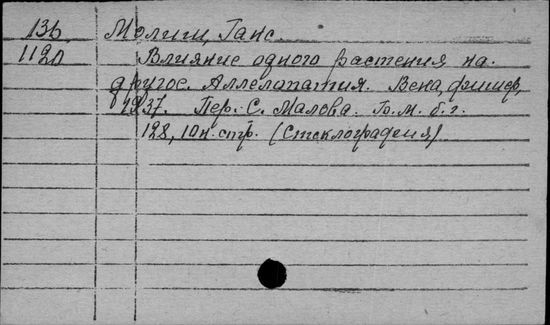 136 Молиш, Ганс.
1120 Влияние одного растения на
другое. Аллелопатия. Вена, Фишер,
1937. Пер. С. Малова. Б.м. б.г.
128, 10 н. стр. (Стеклография)